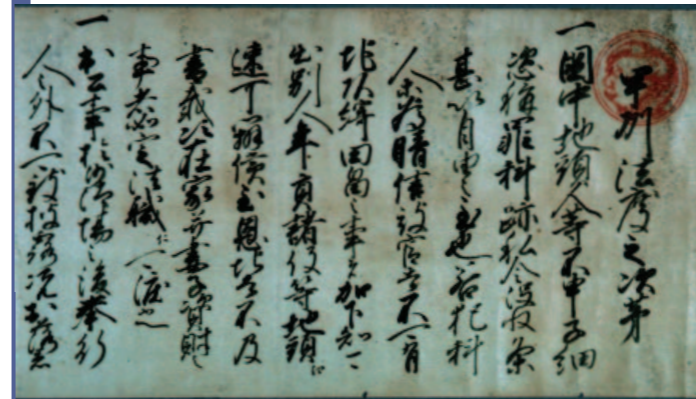 甲州法度之次第
一國中地頭人等不申子細
恣稱罪科跡私令没収条
甚以自由之至也若犯科
人為晴信被官者不可有
地頭綺田畠之事者加下知可
出別人年貢諸役等地頭江
速可辨償至恩地者不及
書載次在家并妻子資財之
事者如定法職ニ可渡之
一出公事於沙汰場之後奉行
人之外不可致披露況於落着